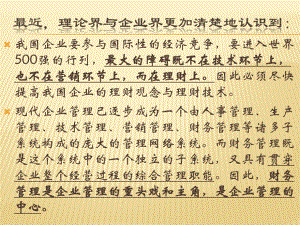 最近，理论界与企业界更加清楚地认识到：
我国企业要参与国际性的经济竞争，要进入世界
500强的行列，最大的障碍既不在技术环节上，
也不在营销环节上，而在理财上。因此必须尽快
提高我国企业的理财观念与理财技术。
现代企业管理已逐步成为一个由人事管理、生产
管理、技术管理、营销管理、财务管理等诸多子
系统构成的庞大的管理网络系统。而财务管理既
是这个系统中的一个独立的子系统，又具有贯穿
企业整个经营过程的综合管理职能。因此，财务
管理是企业管理的重头戏和主角，是企业管理的
中心。